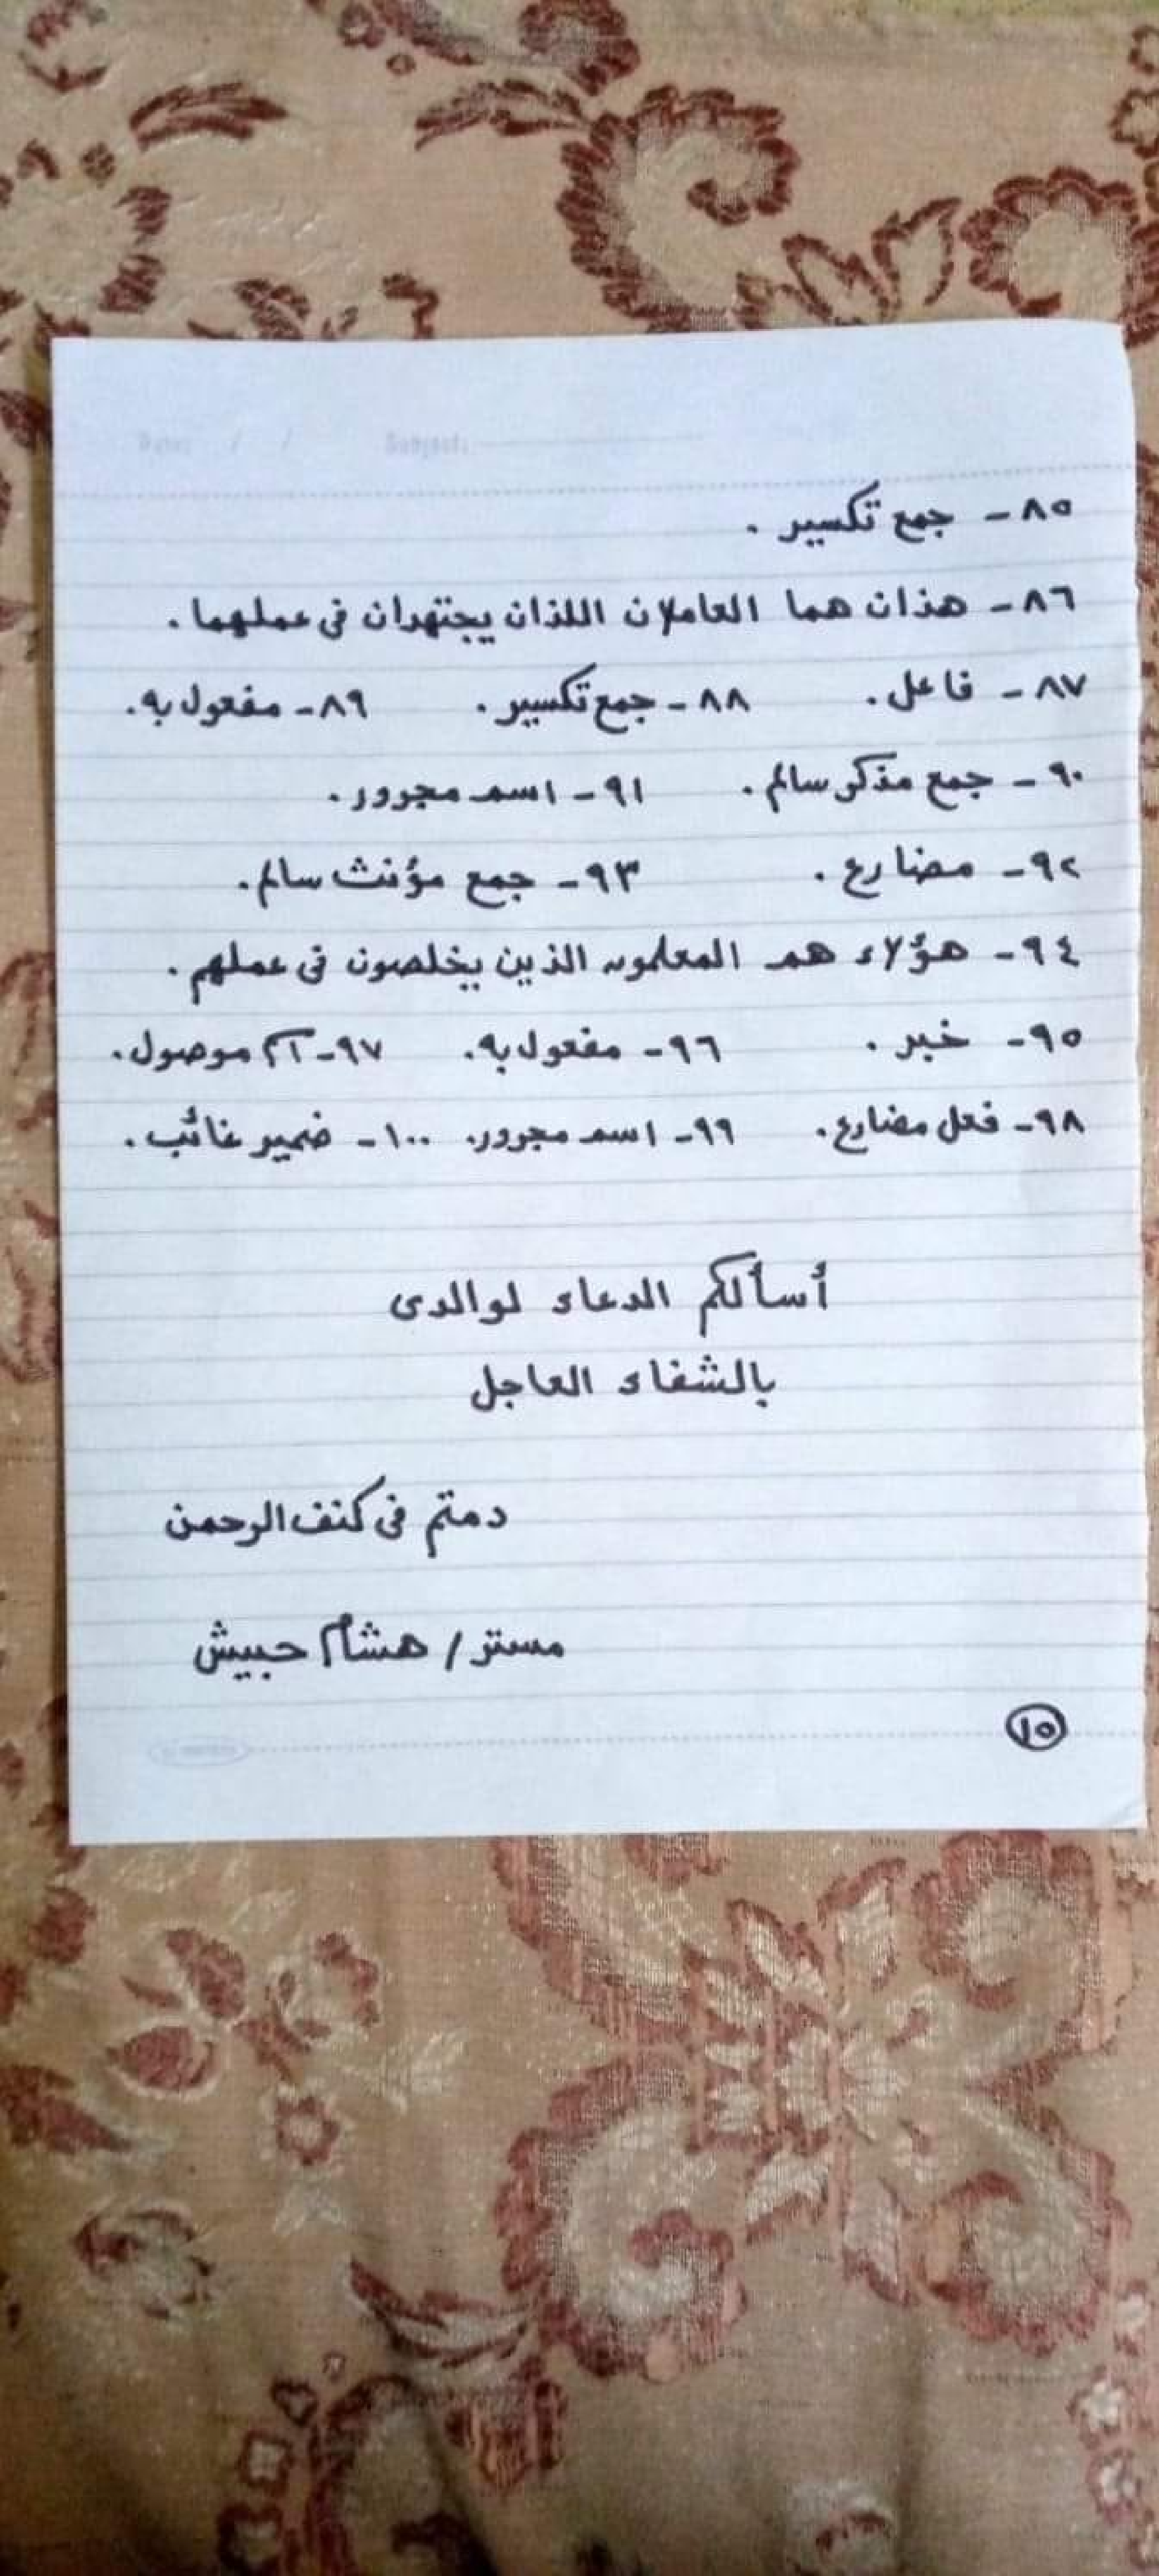 Date: / / Subject:
٨٥ - جمع تكسير .
٨٦ - هذان هما العاملان اللذان يجتهدان فى عملهما .
٨٧ - فاعل . ٨٨ - جمع تكسير . ٨٩ - مفعول به .
٩٠ - جمع مذكر سالم . ٩١ - اسم مجرور .
٩٢ - مضارع . ٩٣ - جمع مؤنث سالم .
٩٤ - هؤلاء هم المعلمون الذين يخلصون فى عملهم .
٩٥ - خبر . ٩٦ - مفعول به . ٩٧ - اسم موصول .
٩٨ - فعل مضارع . ٩٩ - اسم مجرور . ١٠٠ - ضمير غائب .
أسألكم الدعاء لوالدى
بالشفاء العاجل
دمتم فى كنف الرحمن
مستر / هشام حبيش
١٥